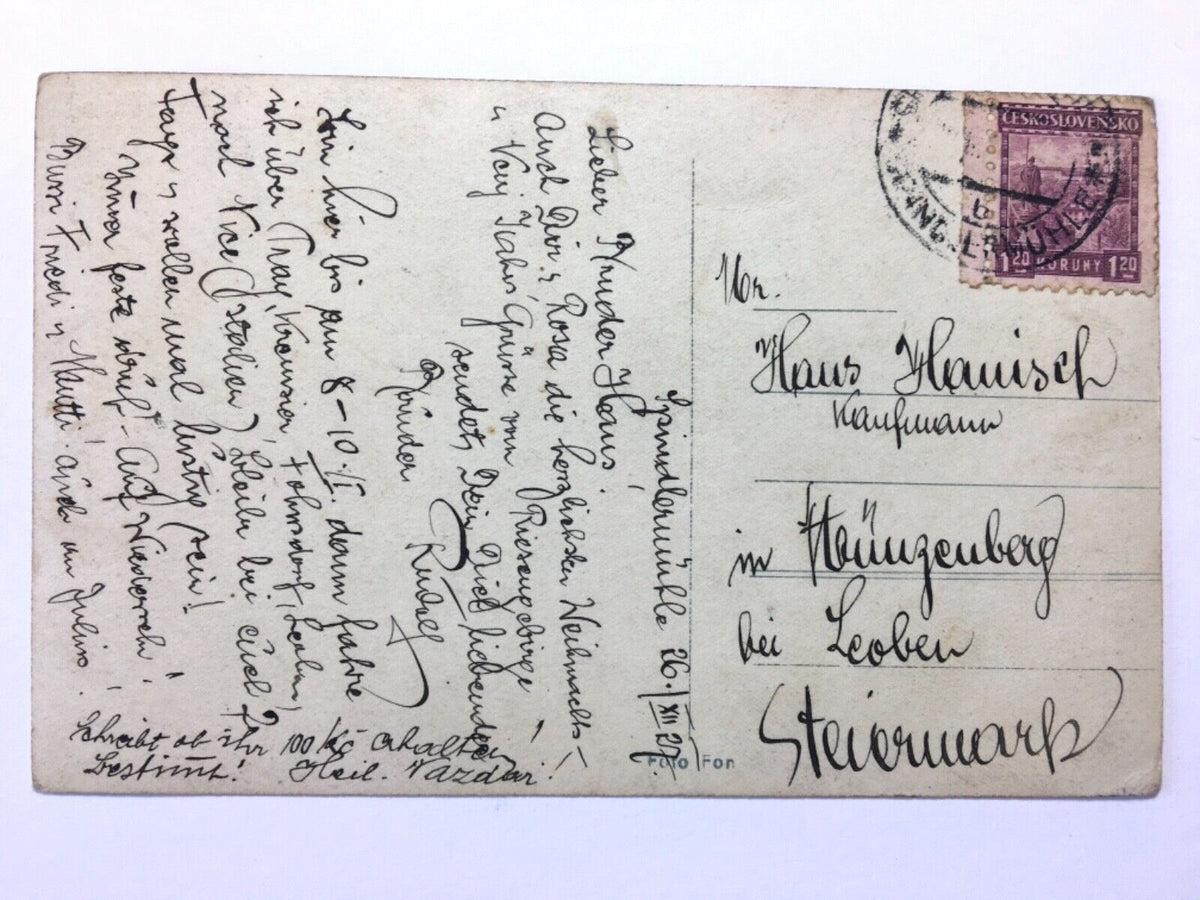 Spindlermühle 26./XII 27.
Lieber Bruder Hans!
Auch Dir u. Rosa die herzlichsten Weihnachts-
u Neujahrs Grüsse vom Riesengebirge!
sendet, Dein Dich liebender
Bruder Rudolf
Bin hier bis zum 8-10./I. dann fahre
ich über Prag, Kremsier,
noch Nice (Italien) bleibe bei euch 2
Tage u wollen mal lustig sein!
Immer feste drauf - Auf Wiederseh'!
Bussi Friedi u Mutti! auch an Julius.
Schreibt ob ihr 100 Kč erhalten
bestimmt! Heil. Nazdar!
Foto Fon
ČESKOSLOVENSKO
1 20 KORUNY 1 20
SPINDLERMÜHLE
b
Hr.
Hans Hanisch
Kaufmann
in Münzenberg
bei Leoben
Steiermark